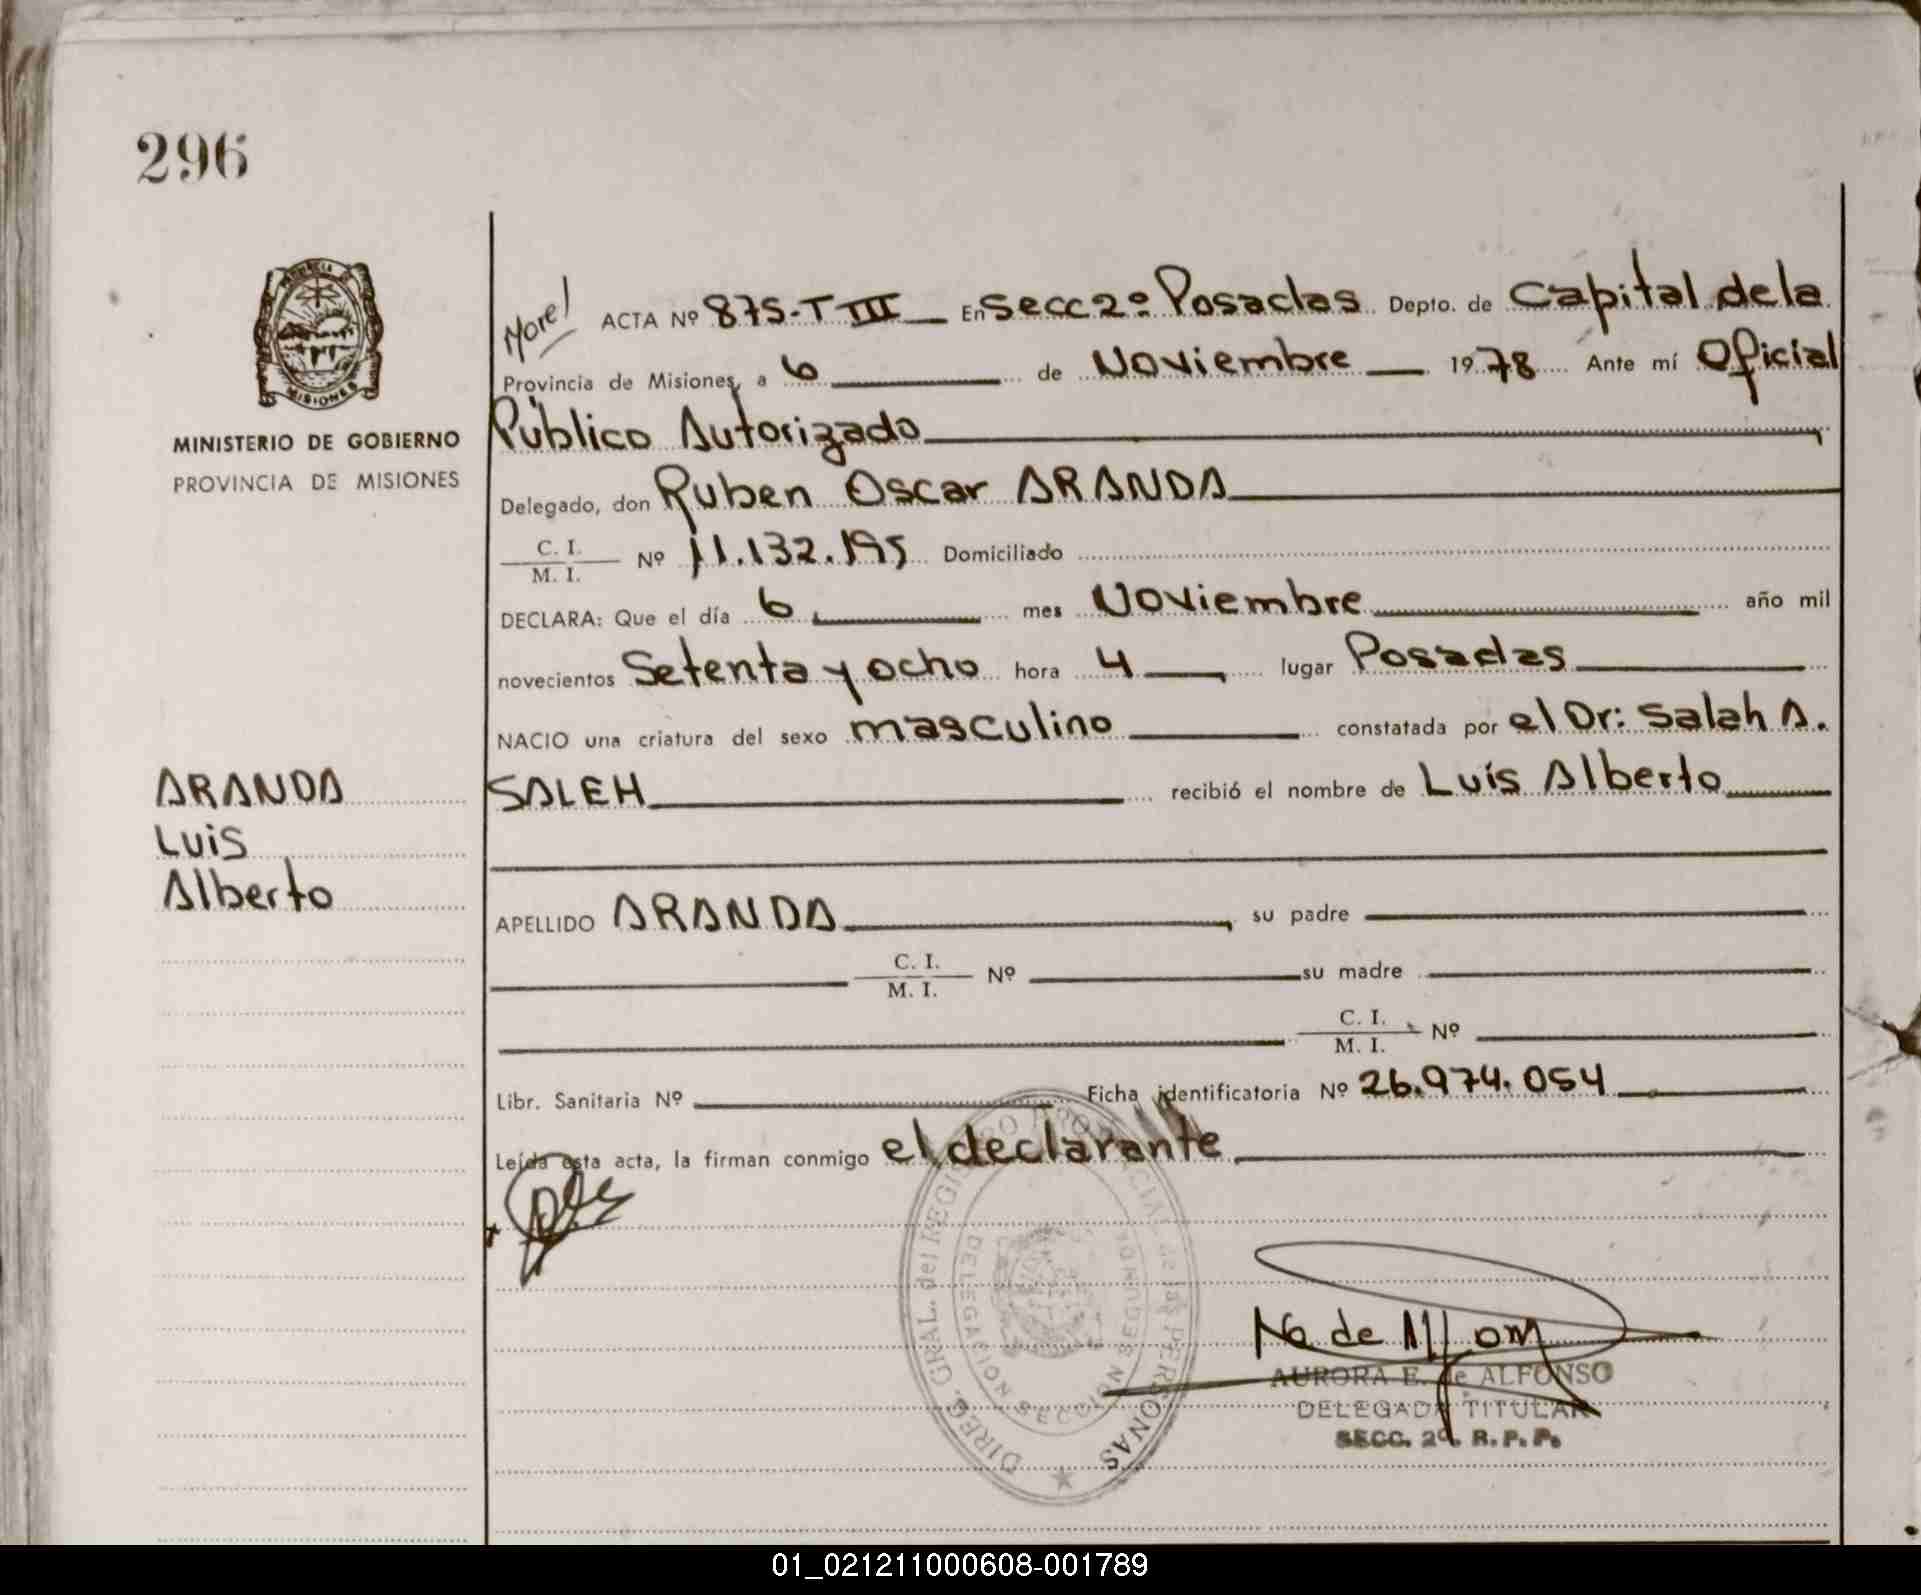 296
MINISTERIO DE GOBIERNO
PROVINCIA DE MISIONES
ARANDA
Luis
Alberto
ACTA Nº 875-T III En Secc 2º Posadas Depto. de Capital de la
Provincia de Misiones, a 6 de Noviembre 1978 Ante mí Oficial
Público Autorizado
Delegado, don Ruben Oscar ARANDA
C. I.
M. I. Nº 11.132.195 Domiciliado
DECLARA: Que el día 6 mes Noviembre año mil
novecientos Setenta y ocho hora 4 lugar Posadas
NACIO una criatura del sexo masculino constatada por el Dr: Salah A.
SALEH recibió el nombre de Luis Alberto
APELLIDO ARANDA su padre
C. I.
M. I. Nº su madre
C. I.
M. I. Nº
Libr. Sanitaria Nº Ficha identificatoria Nº 26.974.054
Leída esta acta, la firman conmigo el declarante
DIREC. GRAL. del REGISTRO PROVINCIAL de las PERSONAS
DELEGACION SECCION SEGUNDA
AURORA E. de ALFONSO
DELEGADA TITULAR
SECC. 2º. R. P. P.
01_021211000608-001789